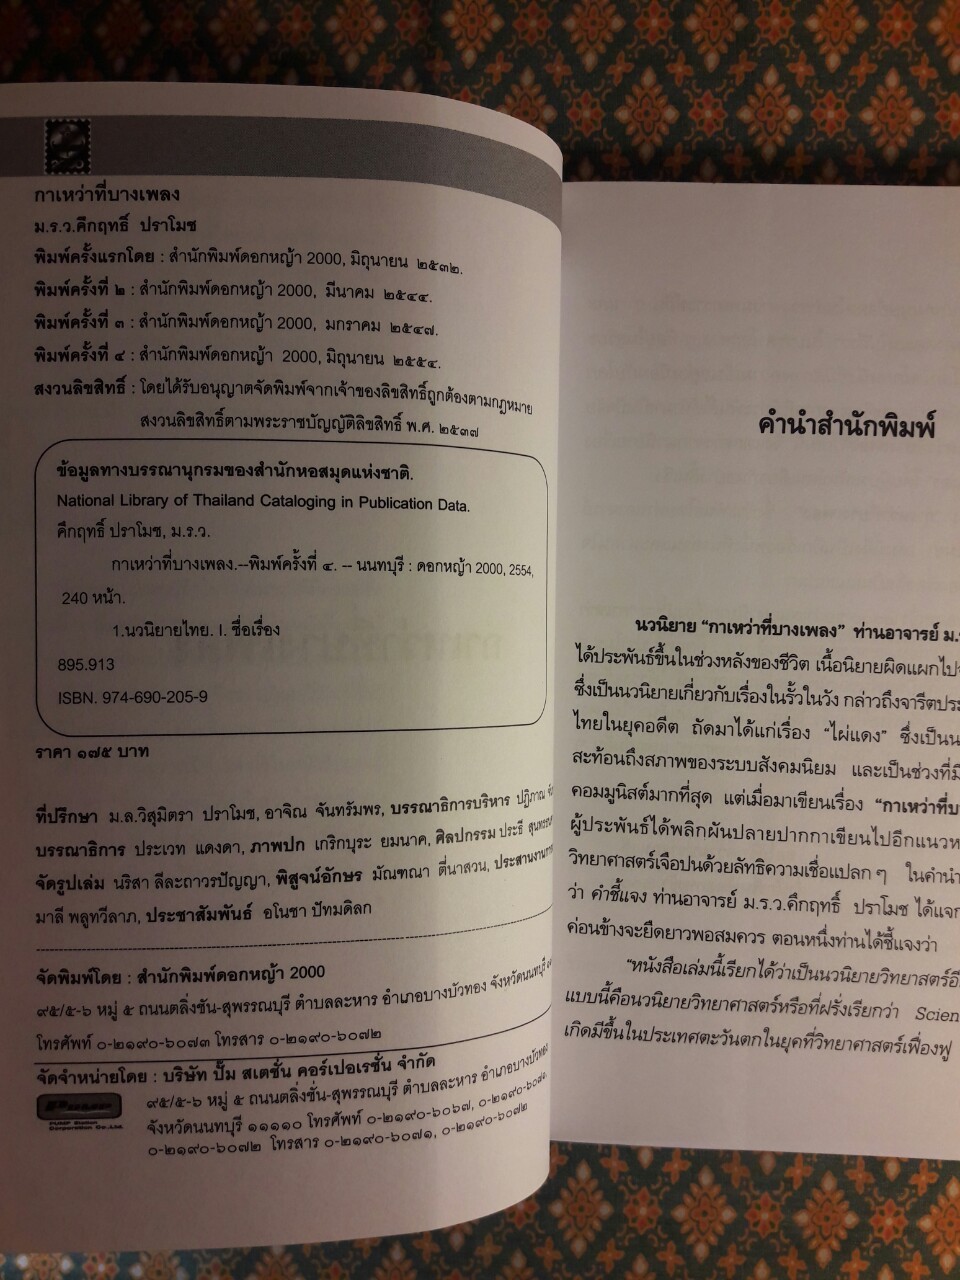 กาเหว่าที่บางเพลง
ม.ร.ว.คึกฤทธิ์ ปราโมช
พิมพ์ครั้งแรกโดย : สำนักพิมพ์ดอกหญ้า 2000, มิถุนายน ๒๕๓๒.
พิมพ์ครั้งที่ ๒ : สำนักพิมพ์ดอกหญ้า 2000, มีนาคม ๒๕๔๔.
พิมพ์ครั้งที่ ๓ : สำนักพิมพ์ดอกหญ้า 2000, มกราคม ๒๕๔๗.
พิมพ์ครั้งที่ ๔ : สำนักพิมพ์ดอกหญ้า 2000, มิถุนายน ๒๕๕๔.
สงวนลิขสิทธิ์ : โดยได้รับอนุญาตจัดพิมพ์จากเจ้าของลิขสิทธิ์ถูกต้องตามกฎหมาย
สงวนลิขสิทธิ์ตามพระราชบัญญัติลิขสิทธิ์ พ.ศ. ๒๕๓๗
ข้อมูลทางบรรณานุกรมของสำนักหอสมุดแห่งชาติ.
National Library of Thailand Cataloging in Publication Data.
คึกฤทธิ์ ปราโมช, ม.ร.ว.
กาเหว่าที่บางเพลง.--พิมพ์ครั้งที่ ๔. -- นนทบุรี : ดอกหญ้า 2000, 2554,
240 หน้า.
1.นวนิยายไทย. I. ชื่อเรื่อง
895.913
ISBN. 974-690-205-9
ราคา ๑๗๕ บาท
ที่ปรึกษา ม.ล.วิสุมิตรา ปราโมช, อาจิณ จันทรัมพร, บรรณาธิการบริหาร ปฏิภาณ
บรรณาธิการ ประเวท แดงดา, ภาพปก เกริกบุระ ยมนาค, ศิลปกรรม ประธี
จัดรูปเล่ม นริสา ลีละถาวรปัญญา, พิสูจน์อักษร มัณฑณา ตี่นาสวน, ประสานงาน
มาลี พลูทวีลาภ, ประชาสัมพันธ์ อโนชา ปัทมดิลก
จัดพิมพ์โดย : สำนักพิมพ์ดอกหญ้า 2000
๙๕/๕-๖ หมู่ ๕ ถนนตลิ่งชัน-สุพรรณบุรี ตำบลละหาร อำเภอบางบัวทอง จังหวัดนนทบุรี
โทรศัพท์ ๐-๒๑๙๐-๖๐๗๓ โทรสาร ๐-๒๑๙๐-๖๐๗๒
จัดจำหน่ายโดย : บริษัท ปั๊ม สเตชั่น คอร์เปอเรชั่น จำกัด
๙๕/๕-๖ หมู่ ๕ ถนนตลิ่งชั่น-สุพรรณบุรี ตำบลละหาร อำเภอบางบัวทอง
จังหวัดนนทบุรี ๑๑๑๑๐ โทรศัพท์ ๐-๒๑๙๐-๖๐๖๗, ๐-๒๑๙๐-๖๐๗๑,
๐-๒๑๙๐-๖๐๗๒ โทรสาร ๐-๒๑๙๐-๖๐๗๑, ๐-๒๑๙๐-๖๐๗๒
PUMP Station
Corporation Co.,Ltd.
คำนำสำนักพิมพ์
นวนิยาย “กาเหว่าที่บางเพลง” ท่านอาจารย์
ได้ประพันธ์ขึ้นในช่วงหลังของชีวิต เนื้อนิยายผิดแผกไป
ซึ่งเป็นนวนิยายเกี่ยวกับเรื่องในรั้วในวัง กล่าวถึงจารีตประ
ไทยในยุคอดีต ถัดมาได้แก่เรื่อง “ไผ่แดง” ซึ่งเป็น
สะท้อนถึงสภาพของระบบสังคมนิยม และเป็นช่วงที่
คอมมูนิสต์มากที่สุด แต่เมื่อมาเขียนเรื่อง “กาเหว่าที่บ
ผู้ประพันธ์ได้พลิกผันปลายปากกาเขียนไปอีกแนว
วิทยาศาสตร์เจือปนด้วยลัทธิความเชื่อแปลก ๆ ในคำนำ
ว่า คำชี้แจง ท่านอาจารย์ ม.ร.ว.คึกฤทธิ์ ปราโมช ได้แจก
ค่อนข้างจะยืดยาวพอสมควร ตอนหนึ่งท่านได้ชี้แจงว่า
“หนังสือเล่มนี้เรียกได้ว่าเป็นนวนิยายวิทยาศาสตร์
แบบนี้คือนวนิยายวิทยาศาสตร์หรือที่ฝรั่งเรียกว่า Scien
เกิดมีขึ้นในประเทศตะวันตกในยุคที่วิทยาศาสตร์เฟื่องฟู